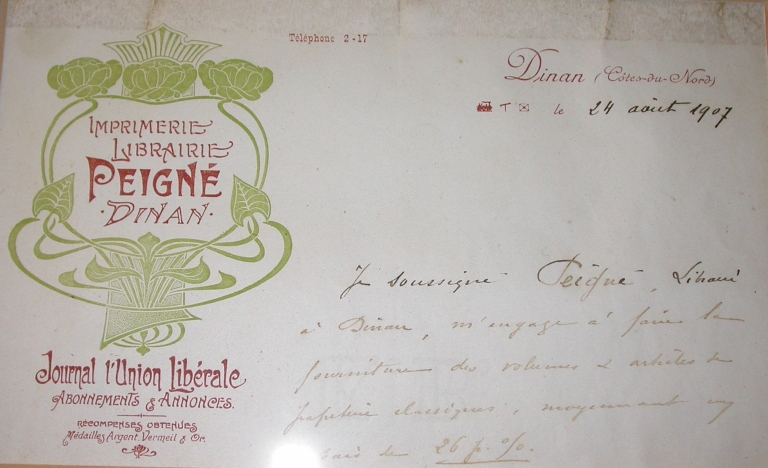 Téléphone 2-17
IMPRIMERIE
LIBRAIRIE
PEIGNÉ
·DINAN·
Journal l'Union Libérale
ABONNEMENTS & ANNONCES.
RÉCOMPENSES OBTENUES
Médailles Argent, Vermeil & Or.
Dinan (Côtes-du-Nord)
le 24 août 1907
Je soussigné Peigné, Libraire
à Dinan, m'engage à faire la
fourniture des volumes & articles de
papeterie classiques, moyennant un
de 26 p. %.